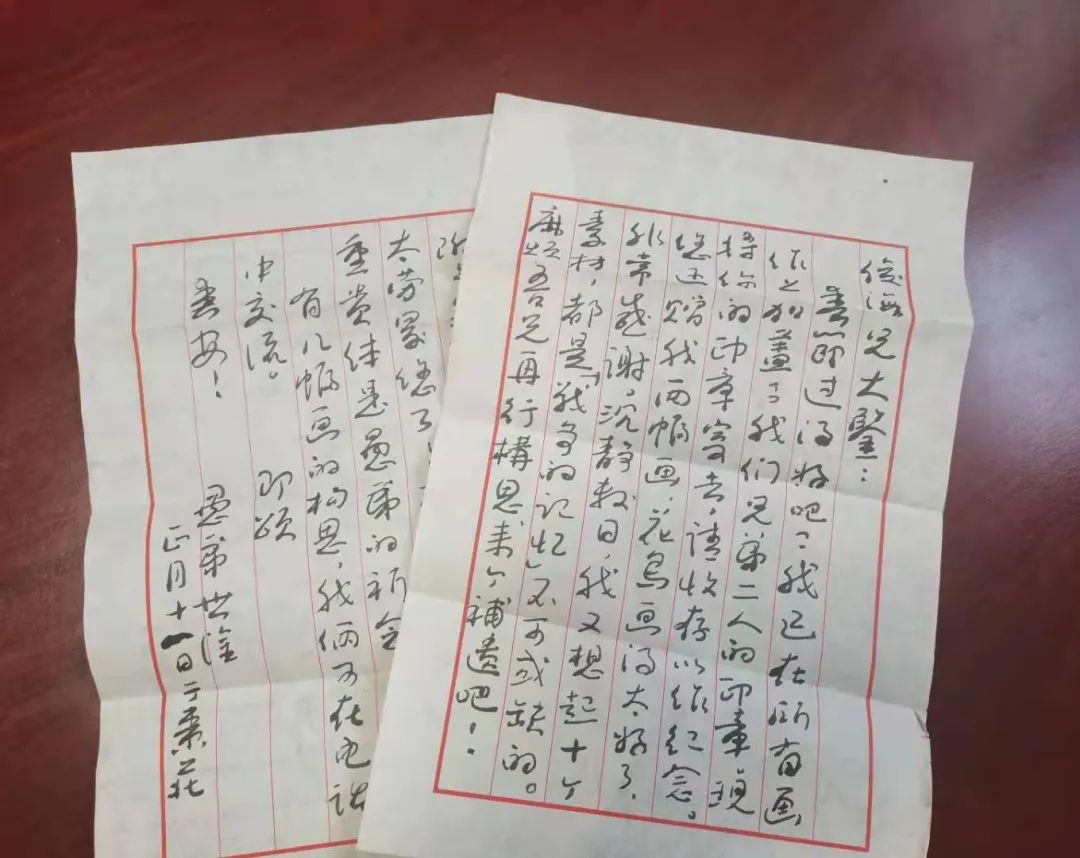 俊海兄大鉴：
春节过得好吧？我已在所有画
作上加盖了我们兄弟二人的印章，现
将你的印章寄去，请收存以作纪念。
您还赠我两幅画，花鸟画得太好了，
非常感谢。沉静数日，我又想起十个
素材，都是“战争的记忆”不可或缺的。
麻烦吾兄再行構思来个補遗吧！
太劳累您了
重贵体是愚弟的祈念
有几幅画的构思，我俩可在电话
中交流。 即颂
春安！
愚弟世淦
正月十一日于枣庄